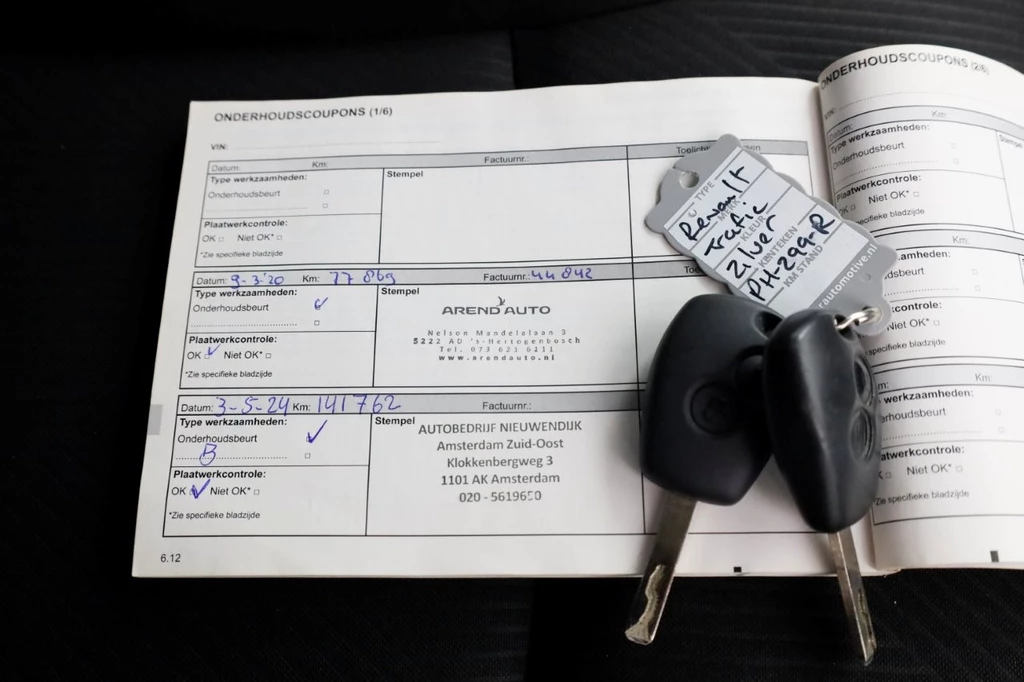 ONDERHOUDSCOUPONS (1/6)
VIN:
Datum: Km: Factuurnr.:
Type werkzaamheden:
Onderhoudsbeurt
Stempel
Plaatwerkcontrole:
OK Niet OK*
*Zie specifieke bladzijde
Datum: 9-3-'20 Km: 77 869 Factuurnr.: 44 842
Type werkzaamheden:
Onderhoudsbeurt
Stempel
AREND AUTO
Nelson Mandelalaan 3
5222 AD 's-Hertogenbosch
Tel. 073 621 6211
www.arendauto.nl
Plaatwerkcontrole:
OK Niet OK*
*Zie specifieke bladzijde
Datum: 3-5-24 Km: 141762 Factuurnr.:
Type werkzaamheden:
Onderhoudsbeurt
B
Stempel
AUTOBEDRIJF NIEUWENDIJK
Amsterdam Zuid-Oost
Klokkenbergweg 3
1101 AK Amsterdam
020 - 5619650
Plaatwerkcontrole:
OK Niet OK*
*Zie specifieke bladzijde
6.12
TYPE
Renault
MERK
Trafic
KLEUR
Zilver
KENTEKEN
PH-299-R
KM STAND
ONDERHOUDSCOUPONS (2/6)
VIN:
Datum: Km:
Type werkzaamheden:
Onderhoudsbeurt
Plaatwerkcontrole:
OK Niet OK*
Km:
Niet OK*
Km:
Niet OK*
*Zie specifieke bladzijde